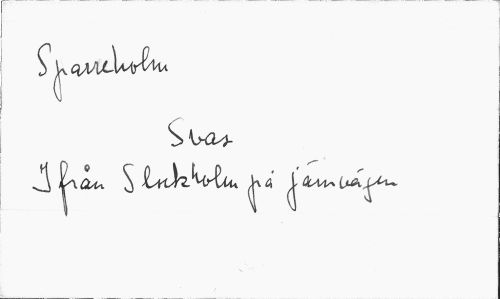 Sparreholm
Svar
Ifrån Stockholm på järnvägen